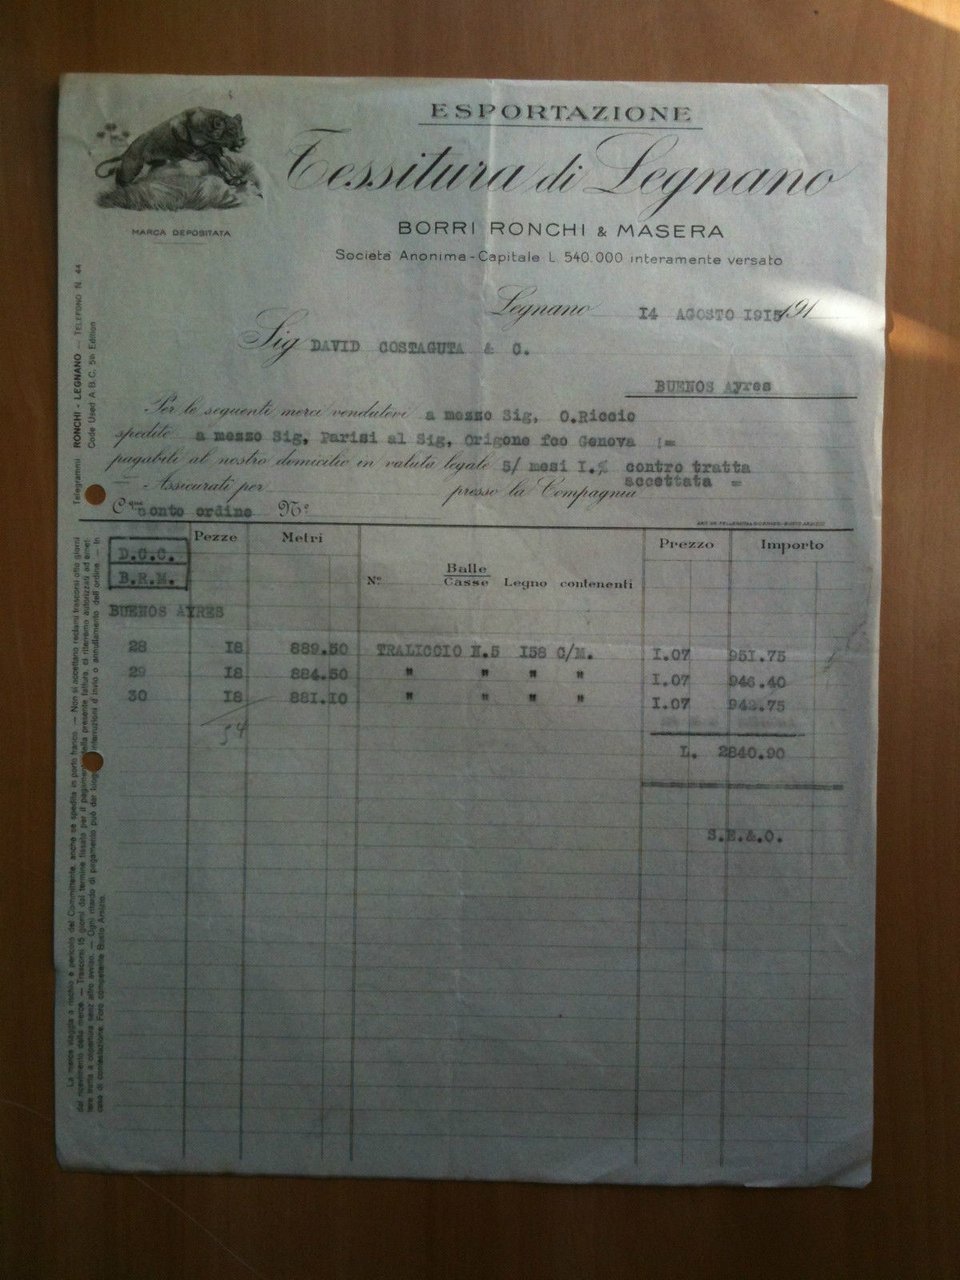 ESPORTAZIONE
Tessitura di Legnano
MARCA DEPOSITATA
BORRI RONCHI & MASERA
Società Anonima - Capitale L. 540.000 interamente versato
Telegrammi RONCHI - LEGNANO — TELEFONO N. 44
Code Used A B C. 5th Edition
Legnano 14 AGOSTO 1915 191
Sig DAVID COSTAGUTA & C.
BUENOS Ayres
Per le seguenti merci vendutevi a mezzo Sig, O.Riccio
spedite a mezzo Sig, Parisi al Sig, Origone fco Genova :=
pagabili al nostro domicilio in valuta legale 5/ mesi I.% contro tratta
accettata =
Assicurati per presso la Compagnia
conto ordine Nº
Pezze Metri Nº Balle Casse Legno contenenti Prezzo Importo
D.C.C.
B.R.M.
BUENOS AYRES
28 I8 889.50 TRALICCIO N.5 I58 C/M. I.07 951.75
29 I8 884.50 " " " " I.07 946.40
30 I8 881.10 " " " " I.07 942.75
54
L. 2840.90
S.E.&.O.
La merce viaggia a rischio e pericolo del Committente, anche se spedita in porto franco. — Non si accettano reclami trascorsi otto giorni
dal ricevimento della merce. — Trascorsi 15 giorni dal termine fissato per il pagamento della presente fattura, ci riterremo autorizzati ad emet
tere tratta a copertura senz'altro avviso. — Ogni ritardo di pagamento può dar luogo interruzioni d'invio o annullamento dell'ordine. — In
caso di contestazione, Foro competente Busto Arsizio.